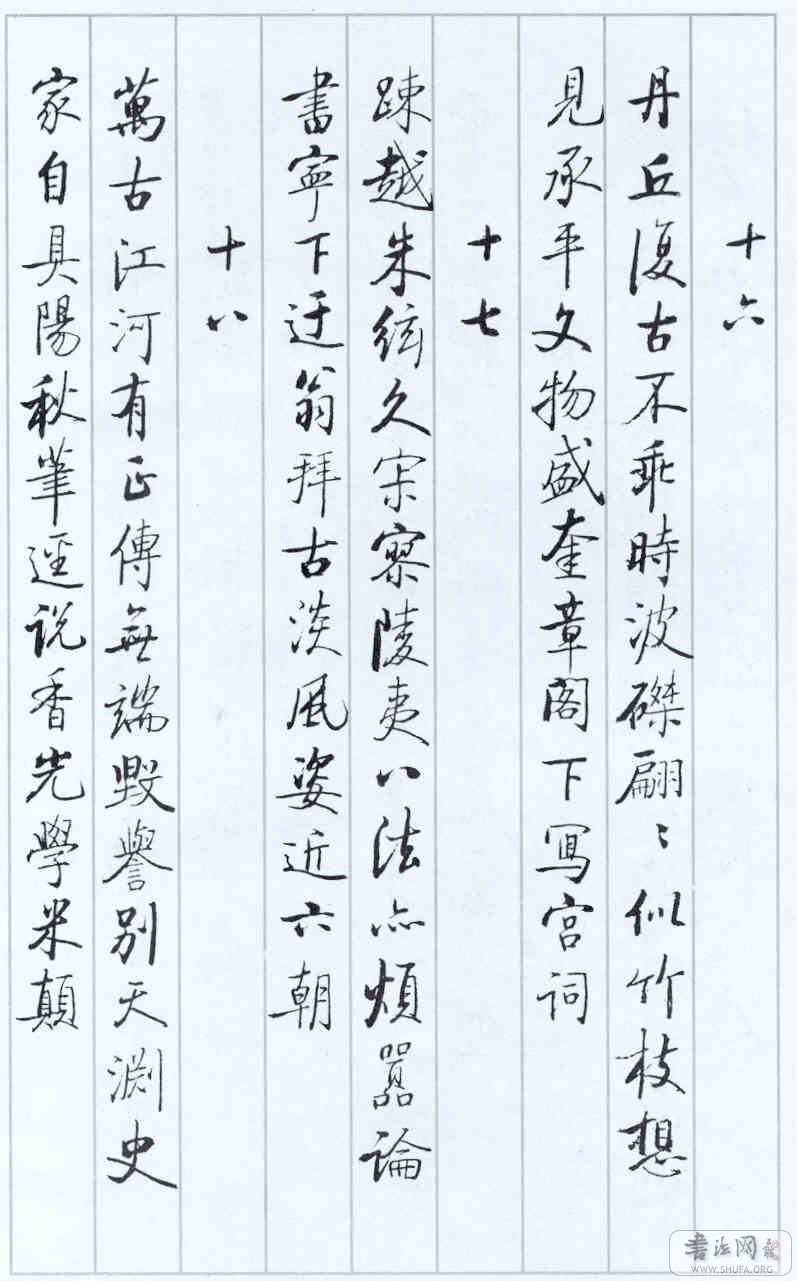 十六
丹丘復古不乖時波磔翩〻似竹枝想
見承平文物盛奎章閣下寫宮詞
十七
疎越朱絃久寂寥陵夷八法亦煩囂論
書寧下迂翁拜古淡風姿近六朝
十八
萬古江河有正傳無端毀譽別天淵史
家自具陽秋筆逕说香光學米顛
書法网
WWW.SHUFA.ORG